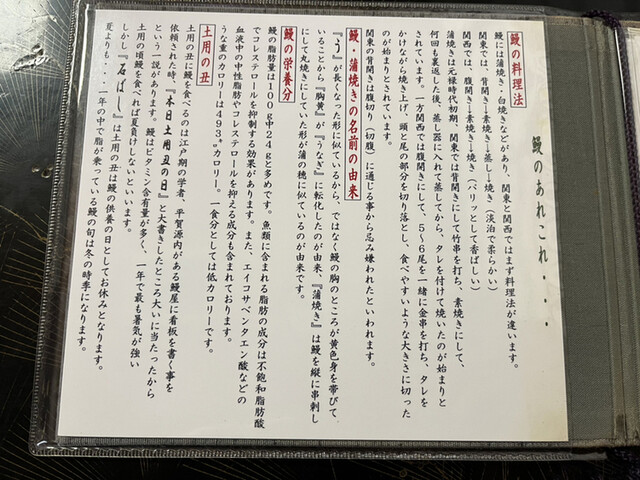 鰻のあれこれ・・・・
鰻の料理法
鰻には蒲焼き・白焼きなどがあり、関東と関西ではまず料理法が違います。
関東では、背開き→素焼き→蒸し→焼き（淡泊で柔らかい）
関西では、腹開き→素焼き→焼き（パリッとして香ばしい）
蒲焼きは元禄時代初期、関東では背開きにして竹串を打ち、素焼きにして、
何回も裏返した後、蒸し器に入れて蒸してから、タレを付けて焼いたのが始まりと
されています。一方関西では腹開きにして、5～6尾を一緒に金串を打ち、タレを
かけながら焼き上げ、頭と尾の部分を切り落とし、食べやすいような大きさに切った
のが始まりとされています。
関東の背開きは腹切り（切腹）に通じる事から忌み嫌われたといわれます。
鰻・蒲焼きの名前の由来
『う』が長くなった形に似ているから、ではなく鰻の胸のところが黄色身を帯びて
いることから『胸黄』が『うなぎ』に転化したのが由来、『蒲焼き』は鰻を縦に串刺し
にして丸焼きにしていた形が蒲の穂に似ているのが由来です。
鰻の栄養分
鰻の脂肪量は100g中24gと多めです。魚類に含まれる脂肪の成分は不飽和脂肪酸
でコレステロールを抑制する効果があります。また、エイコサペンタエン酸などの
血液中の中性脂肪やコレステロールを抑える成分も含まれております。
うな重のカロリーは493㌔カロリー。一食分としては低カロリーです。
土用の丑
土用の丑に鰻を食べるのは江戸期の学者、平賀源内がある鰻屋に看板を書く事を
依頼された時、『本日土用丑の日』と大書きしたところ大いに当たったから
という一説があります。鰻はビタミン含有量が多く、一年で最も暑気が強い
土用の頃鰻を食べれば夏負けしないといいます。
しかし『石ばし』は土用の丑は鰻の供養の日としてお休みとなります。
夏よりも・・一年の中で脂が乗っている鰻の旬は冬の時季になります。